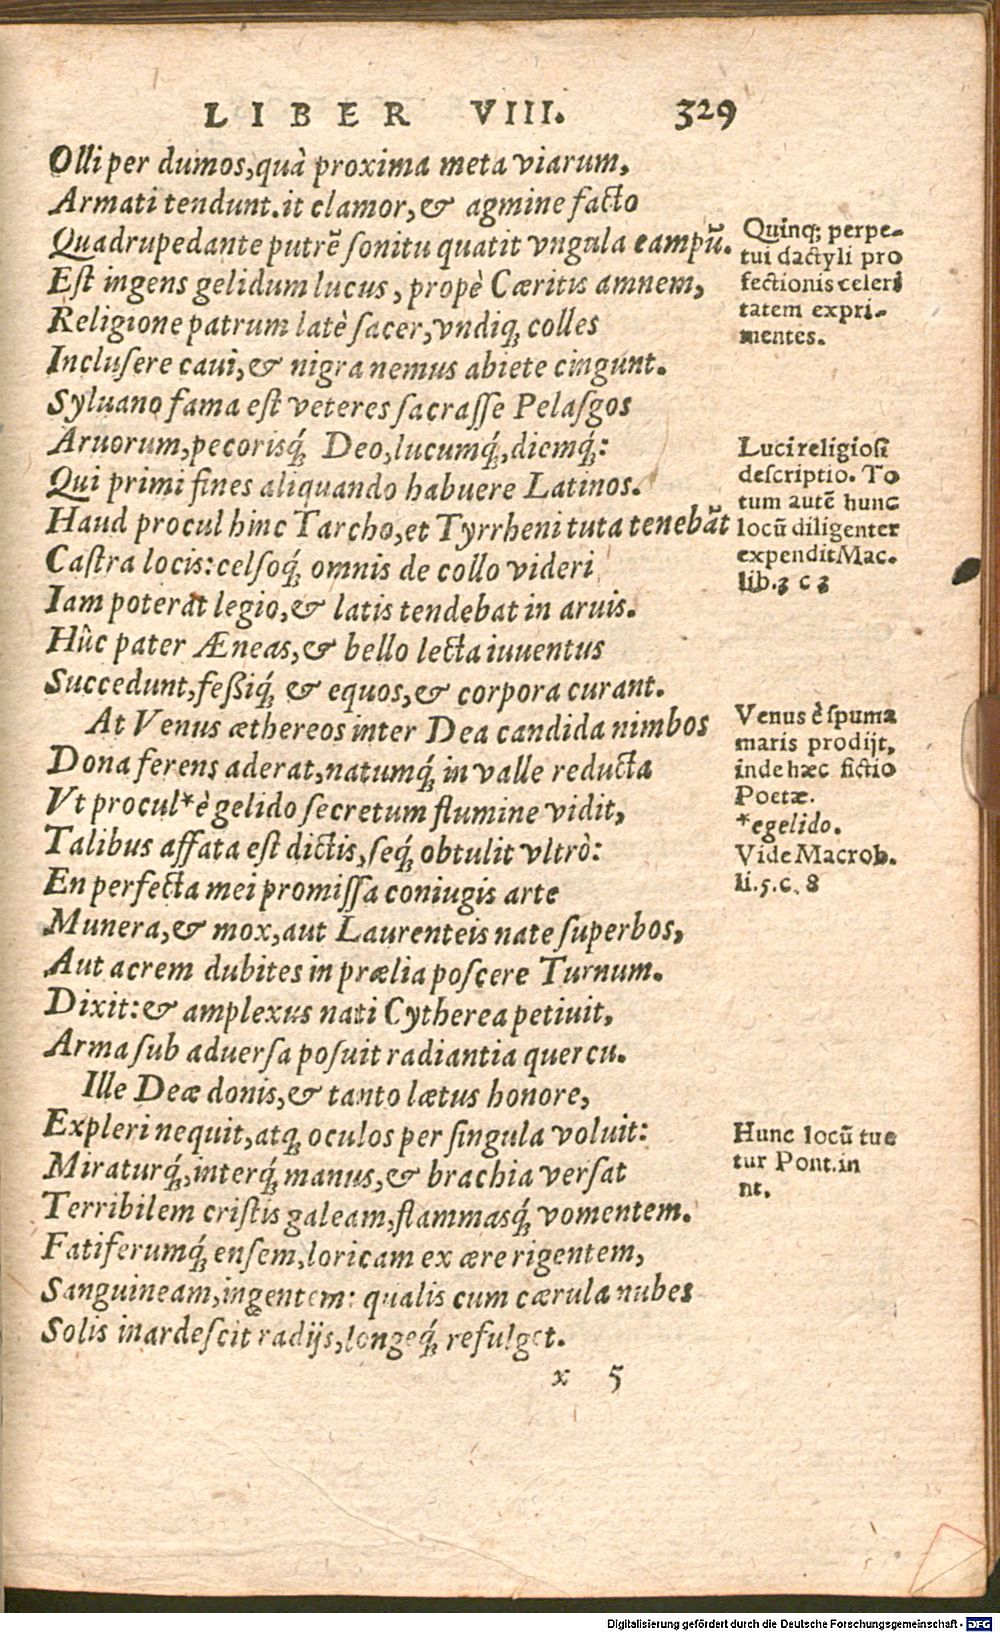 LIBER VIII. 329
Olli per dumos, quà proxima meta viarum,
Armati tendunt. it clamor, & agmine facto
Quadrupedante putrẽ sonitu quatit vngula campũ.
Est ingens gelidum lucus, propè Cæritis amnem,
Religione patrum latè sacer, vndiq; colles
Inclusere caui, & nigra nemus abiete cingunt.
Syluano fama est veteres sacrasse Pelasgos
Aruorum, pecorisq́; Deo, lucumq́;, diemq́;:
Qui primi fines aliquando habuere Latinos.
Haud procul hinc Tarcho, et Tyrrheni tuta tenebãt
Castra locis: celsoq́; omnis de collo videri
Iam poterat legio, & latis tendebat in aruis.
Hûc pater Æneas, & bello lecta iuuentus
Succedunt, feßiq́; & equos, & corpora curant.
At Venus æthereos inter Dea candida nimbos
Dona ferens aderat, natumq́; in valle reducta
Vt procul * è gelido secretum flumine vidit,
Talibus affata est dictis, seq́; obtulit vltrò:
En perfecta mei promissa coniugis arte
Munera, & mox, aut Laurenteis nate superbos,
Aut acrem dubites in prælia poscere Turnum.
Dixit: & amplexus nati Cytherea petiuit,
Arma sub aduersa posuit radiantia quercu.
Ille Deæ donis, & tanto lætus honore,
Expleri nequit, atq; oculos per singula voluit:
Miraturq́;, interq́; manus, & brachia versat
Terribilem cristis galeam, flammasq́; vomentem.
Fatiferumq́; ensem, loricam ex ære rigentem,
Sanguineam, ingentem: qualis cum cærula nubes
Solis inardescit radijs, longeq́; refulget.
x 5
Quinq; perpe-
tui dactyli pro
fectionis celeri
tatem expri-
mentes.
Luci religiosi
descriptio. To
tum autẽ hunc
locũ diligenter
expendit Mac.
lib. 3 c 3
Venus è spuma
maris prodijt,
inde hæc fictio
Poetæ.
*egelido.
Vide Macrob.
li. 5. c. 8
Hunc locũ tue
tur Pont. in
nt.
Digitalisierung gefördert durch die Deutsche Forschungsgemeinschaft - DFG